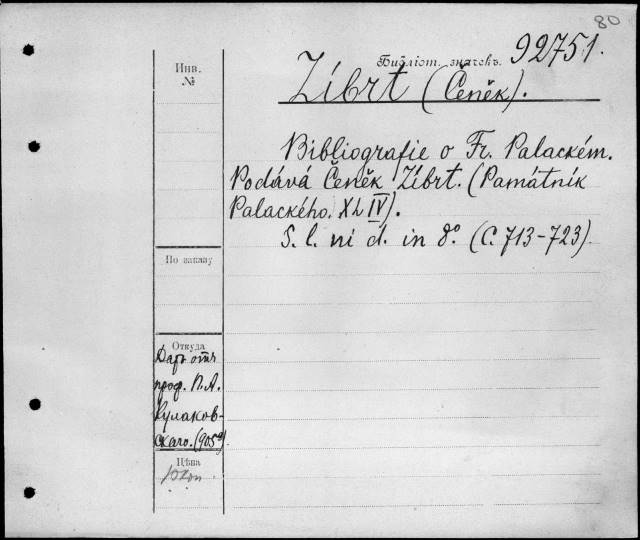 80
Библіот. значекъ. 92751.
Инв.
№
Zíbrt (Čeněk).
Bibliografie o Fr. Palackém.
Podává Čeněk Zíbrt. (Památník
Palackého. XLIV).
S. l. ni d. in 8°. (С. 713-723).
По заказу
Откуда
Даръ отъ
проф. П. А.
Кулаков-
скаго. (905 г)
Цѣна